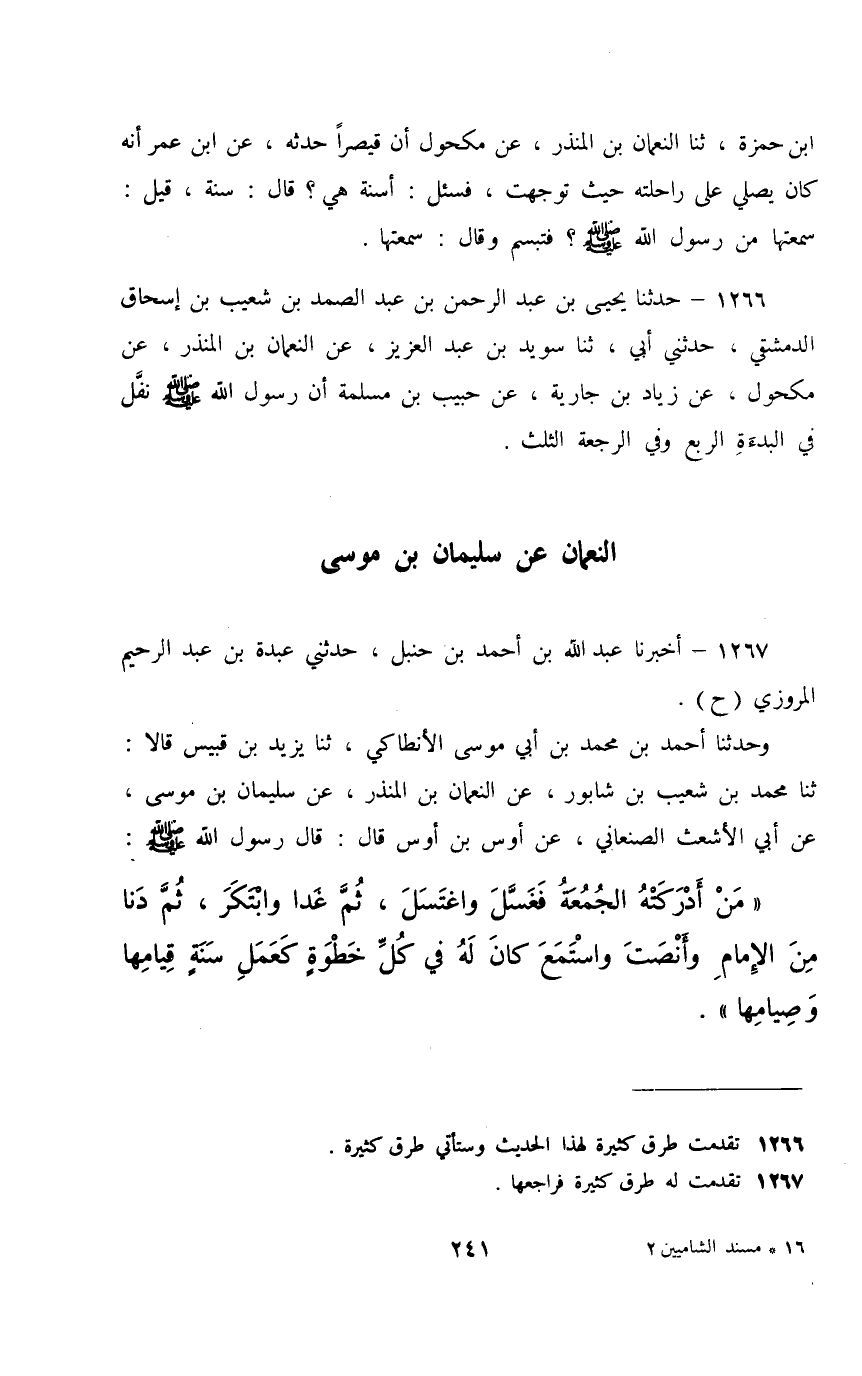 ابن حمزة ، ثنا النعمان بن المنذر ، عن مكحول أن قيصراً حدثه ، عن ابن عمر أنه
كان يصلي على راحلته حيث توجهت ، فسئل : أسنة هي ؟ قال : سنة ، قيل :
سمعتها من رسول الله ﷺ ؟ فتبسم وقال : سمعتها .
١٢٦٦ – حدثنا يحيى بن عبد الرحمن بن عبد الصمد بن شعيب بن إسحاق
الدمشقي ، حدثني أبي ، ثنا سويد بن عبد العزيز ، عن النعمان بن المنذر ، عن
مكحول ، عن زياد بن جارية ، عن حبيب بن مسلمة أن رسول الله ﷺ نفَّل
في البدءَةِ الربع وفي الرجعة الثلث .
النعمان عن سليمان بن موسى
١٢٦٧ – أخبرنا عبد الله بن أحمد بن حنبل ، حدثني عبدة بن عبد الرحيم
المروزي (ح) .
وحدثنا أحمد بن محمد بن أبي موسى الأنطاكي ، ثنا يزيد بن قبيس قالا :
ثنا محمد بن شعيب بن شابور ، عن النعمان بن المنذر ، عن سليمان بن موسى ،
عن أبي الأشعث الصنعاني ، عن أوس بن أوس قال : قال رسول الله ﷺ :
« مَنْ أَدْرَكَتْهُ الجُمُعَةُ فَغَسَّلَ واغتَسَلَ ، ثُمَّ غَدا وابْتَكَرَ ، ثُمَّ دَنا
مِنَ الإِمامِ وأَنْصَتَ واسْتَمَعَ كانَ لَهُ في كُلِّ خَطْوَةٍ كَعَمَلِ سَنَةٍ قِيامِها
وَصِيامِها » .
١٢٦٦ تقدمت طرق كثيرة لهذا الحديث وستأتي طرق كثيرة .
١٢٦٧ تقدمت له طرق كثيرة فراجعها .
١٦ * مسند الشاميين ٢ ٢٤١